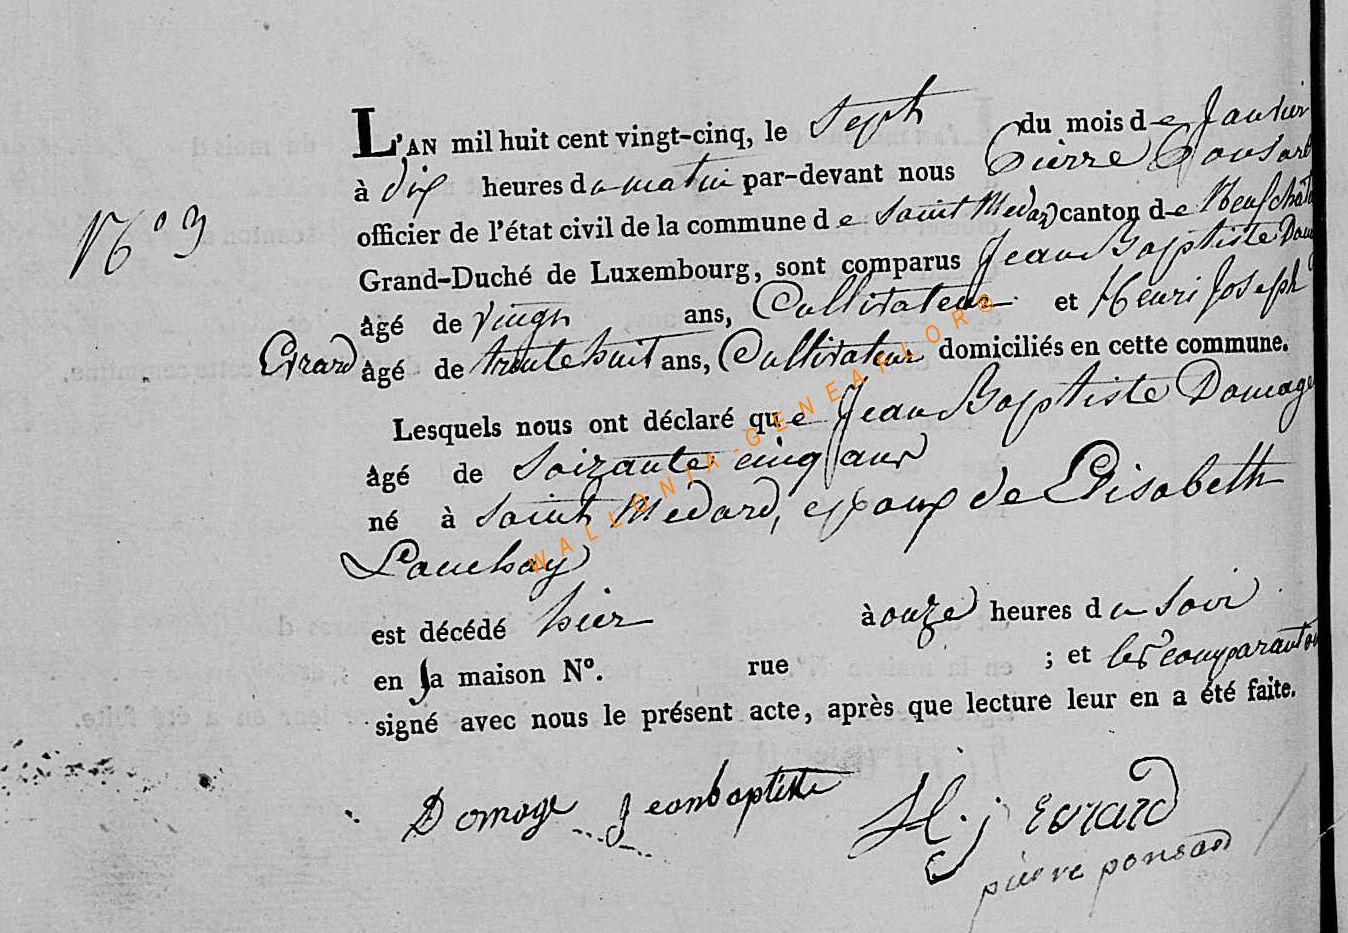 L'AN mil huit cent vingt-cinq, le Sept du mois de Janvier
à dix heures du matin par-devant nous Pierre Ponsard
officier de l'état civil de la commune de Saint Medard canton de Neufchât
N° 3
Grand-Duché de Luxembourg, sont comparus Jean Baptiste Dom
âgé de vingt ans, Cultivateur et Henri Joseph
Evrard âgé de trente huit ans, Cultivateur domiciliés en cette commune.
Lesquels nous ont déclaré que Jean Baptiste Domage
âgé de Soixante cinq ans
né à Saint Medard, epoux de Elisabeth
Pauchay
est décédé hier à onze heures du Soir
en sa maison N°. rue ; et les comparants ont
signé avec nous le présent acte, après que lecture leur en a été faite.
Domage jeanbaptiste H. j Evrard
pierre ponsard
WALLONIA-GENEALORG